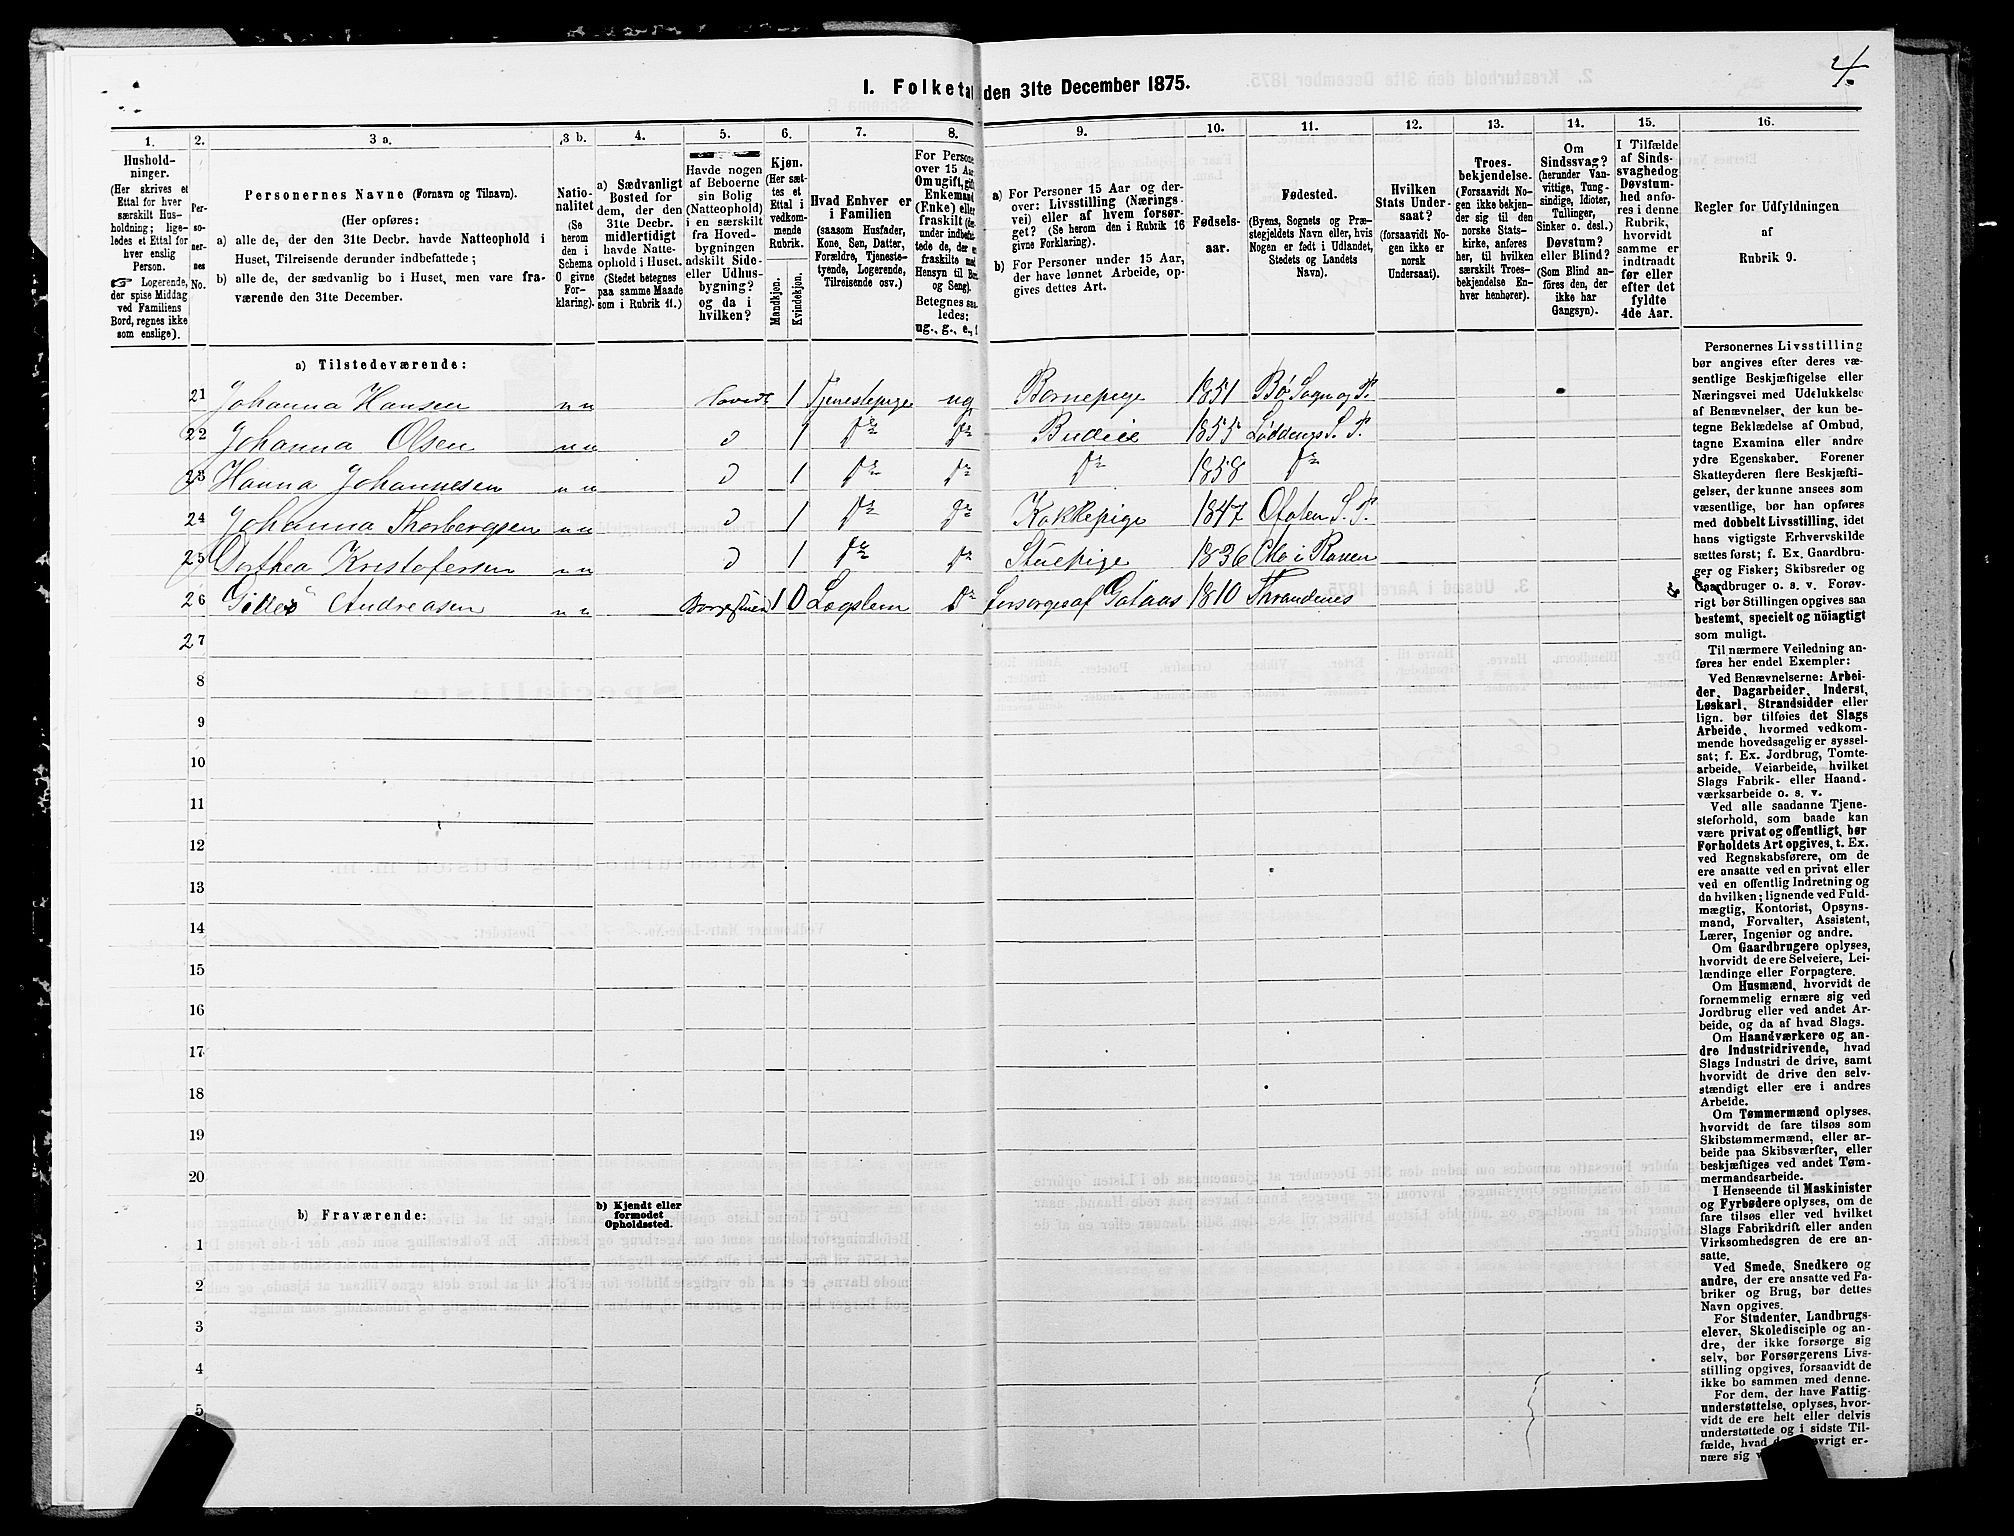 4.
I. Folketal den 31te December 1875.
1. 2. 3 a. 3 b. 4. 5. 6. 7. 8. 9. 10. 11. 12. 13. 14. 15. 16.
Hushold-
ninger.
(Her skrives et
Ettal for hver
særskilt Hus-
holdning; lige-
ledes et Ettal for
hver enslig
Person.
☞ Logerende,
der spise Middag
ved Familiens
Bord, regnes ikke
som enslige).
Per-
so-
ner-
nes
No.
Personernes Navne (Fornavn og Tilnavn).
(Her opføres:
a) alle de, der den 31te Decbr. havde Natteophold i
Huset, Tilreisende derunder indbefattede;
b) alle de, der sædvanlig bo i Huset, men vare fra-
værende den 31te December.
Natio-
nalitet
(Se
herom
den i
Schema
O givne
For-
klaring).
a) Sædvanligt
Bosted for
dem, der den
31te Decbr.
midlertidigt
havde Natte-
ophold i Huset.
(Stedet betegnes
paa samme Maade
som i Rubrik 11.)
Havde nogen
af Beboerne
sin Bolig
(Natteophold)
i en særskilt
fra Hoved-
bygningen
adskilt Side-
eller Udhus-
bygning?
og da i
hvilken?
Kjøn.
(Her sæt-
tes et
Ettal i
vedkom-
mende
Rubrik.
Mandkjøn.
Kvindekjøn.
Hvad Enhver er
i Familien
(saasom Husfader,
Kone, Søn, Datter,
Forældre, Tjeneste-
tyende, Logerende,
Tilreisende osv.)
For Persone
over 15 Aar
Om ugift, gift
Enkemand
(Enke) eller
fraskilt
Hensyn til Bor
og Seng).
Betegnes saa-
ledes:
ug., g., e., f
a) For Personer 15 Aar og der-
over: Livsstilling (Nærings-
vei) eller af hvem forsør-
get? (Se herom den i Rubrik 16
givne Forklaring).
b) For Personer under 15 Aar,
der have lønnet Arbeide, op-
gives dettes Art.
Fødsels-
aar.
Fødested.
(Byens, Sognets og Præ-
stegjeldets Navn eller, hvis
Nogen er født i Udlandet,
Stedets og Landets
Navn).
Hvilken
Stats Under-
saat?
(forsaavidt No-
gen ikke er
norsk
Undersaat).
Troes-
bekjendelse.
(Forsaavidt No-
gen ikke bekjen-
der sig til den
norske Stats-
kirke, anføres
her, til hvilken
særskilt Troes-
bekjendelse En-
hver henhører).
Om
Sindssvag?
(herunder Van-
vittige, Tung-
sindige, Idioter,
Tullinger,
Sinker o. desl.)
Døvstum?
eller Blind?
(Som Blind an-
føres den, der
ikke har
Gangsyn).
I Tilfælde
af Sinds-
svaghedog
Døvstum-
hed anfø-
res i denne
Rubrik,
hvorvidt
samme er
indtraadt
før eller
efter det
fyldte
4de Aar.
Regler for Udfyldningen
af
Rubrik 9.
a) Tilstedeværende:
21 Johanna Hansen n n 1 Tjenestepige ug Bornepige 1851 Bø Sogn og P.
22 Johanna Olsen n n 1 Do Do Budeie 1855 Løddengs S. P.
23 Hanna Johannesen n n 1 Do Do Do 1858 Do
24 Johanna Thorbergsen n n 1 Do Do Kokkepige 1847 Ofoten S. P.
25 Dorthea Kristofersen n n 1 Do Do Stuepige 1836 Mo i Ranen
26 Andreasen n n Borgestuen 1 0 Logslem Do forsorges af Galaas 1810 Thrandenes
27
8
9
10
11
12
13
14
15
16
17
18
19
20
b) Fraværende:
b) Kjendt eller
formodet
Opholdssted.
1
2
3
4
5
Personernes Livsstilling
bør angives efter deres væ-
sentlige Beskjæftigelse eller
Næringsvei med Udelukkelse
af Benævnelser, der kun be-
tegne Beklædelse af Ombud,
tagne Examina eller andre
ydre Egenskaber. Forener
Skatteyderen flere Beskjæfti-
gelser, der kunne ansees som
væsentlige, bør han opføres
med dobbelt Livsstilling, idet
hans vigtigste Erhvervskilde
sættes først; f. Ex. Gaardbru-
ger og Fisker; Skibsreder og
Gaardbruger o. s. v. Forøv-
rigt bør Stillingen opgives saa
bestemt, specielt og nöiagtigt
som muligt.
Til nærmere Veiledning an-
føres her endel Exempler:
Ved Benævnelserne: Arbei-
der, Dagarbeider, Inderst,
Løskarl, Strandsidder eller
lign. bør tilføies det Slags
Arbeide, hvormed vedkom-
mende hovedsagelig er syssel-
sat; f. Ex. Jordbrug, Tomte-
arbeide, Veiarbeide, hvilket
Slags Fabrik- eller Haand-
værksarbeide o. s. v.
Ved alle saadanne Tjene-
steforhold, som baade kan
være privat og offentligt, bør
Forholdets Art opgives, t. Ex.
ved Regnskabsførere, om de
ere ansatte ved en privat eller
ved en offentlig Indretning og
da hvilken; lignende ved Fuld-
mægtig, Kontorist, Opsyns-
mand, Forvalter, Assistent,
Lærer, Ingeniør og andre.
Om Gaardbrugere oplyses,
hvorvidt de ere Selveiere, Lei-
lændinge eller Forpagtere.
Om Husmænd, hvorvidt de
fornemmelig ernære sig ved
Jordbrug eller ved andet Ar-
beide, og da af hvad Slags.
Om Haandværkere og an-
dre Industridrivende, hvad
Slags Industri de drive, samt
hvorvidt de drive den selv-
stændigt eller ere i andres
Arbeide.
Om Tømmermænd oplyses,
hvorvidt de fare tilsøs som
Skibstømmermænd, eller ar-
beide paa Skibsværfter, eller
beskjæftiges ved andet Tøm-
mermandsarbeide.
I Henseende til Maskinister
og Fyrbødere oplyses, om de
fare tilsøs eller ved hvilket
Slags Fabrikdrift eller anden
Virksomhedsgren de ere an-
satte.
Ved Smede, Snedkere og
andre, der ere ansatte ved Fa-
briker og Brug, bør dettes
Navn opgives.
For Studenter, Landbrugs-
elever, Skoledisciple og an-
dre, der ikke forsørge sig
selv, bør Forsørgerens Livs-
stilling opgives, forsaavidt de
ikke bo sammen med denne.
For dem, der have Fattig-
understøttelse, oplyses, hvor-
vidt de ere helt eller delvis
understøttede og i sidste Til-
fælde, hvad de øvrigt er-
nære sig